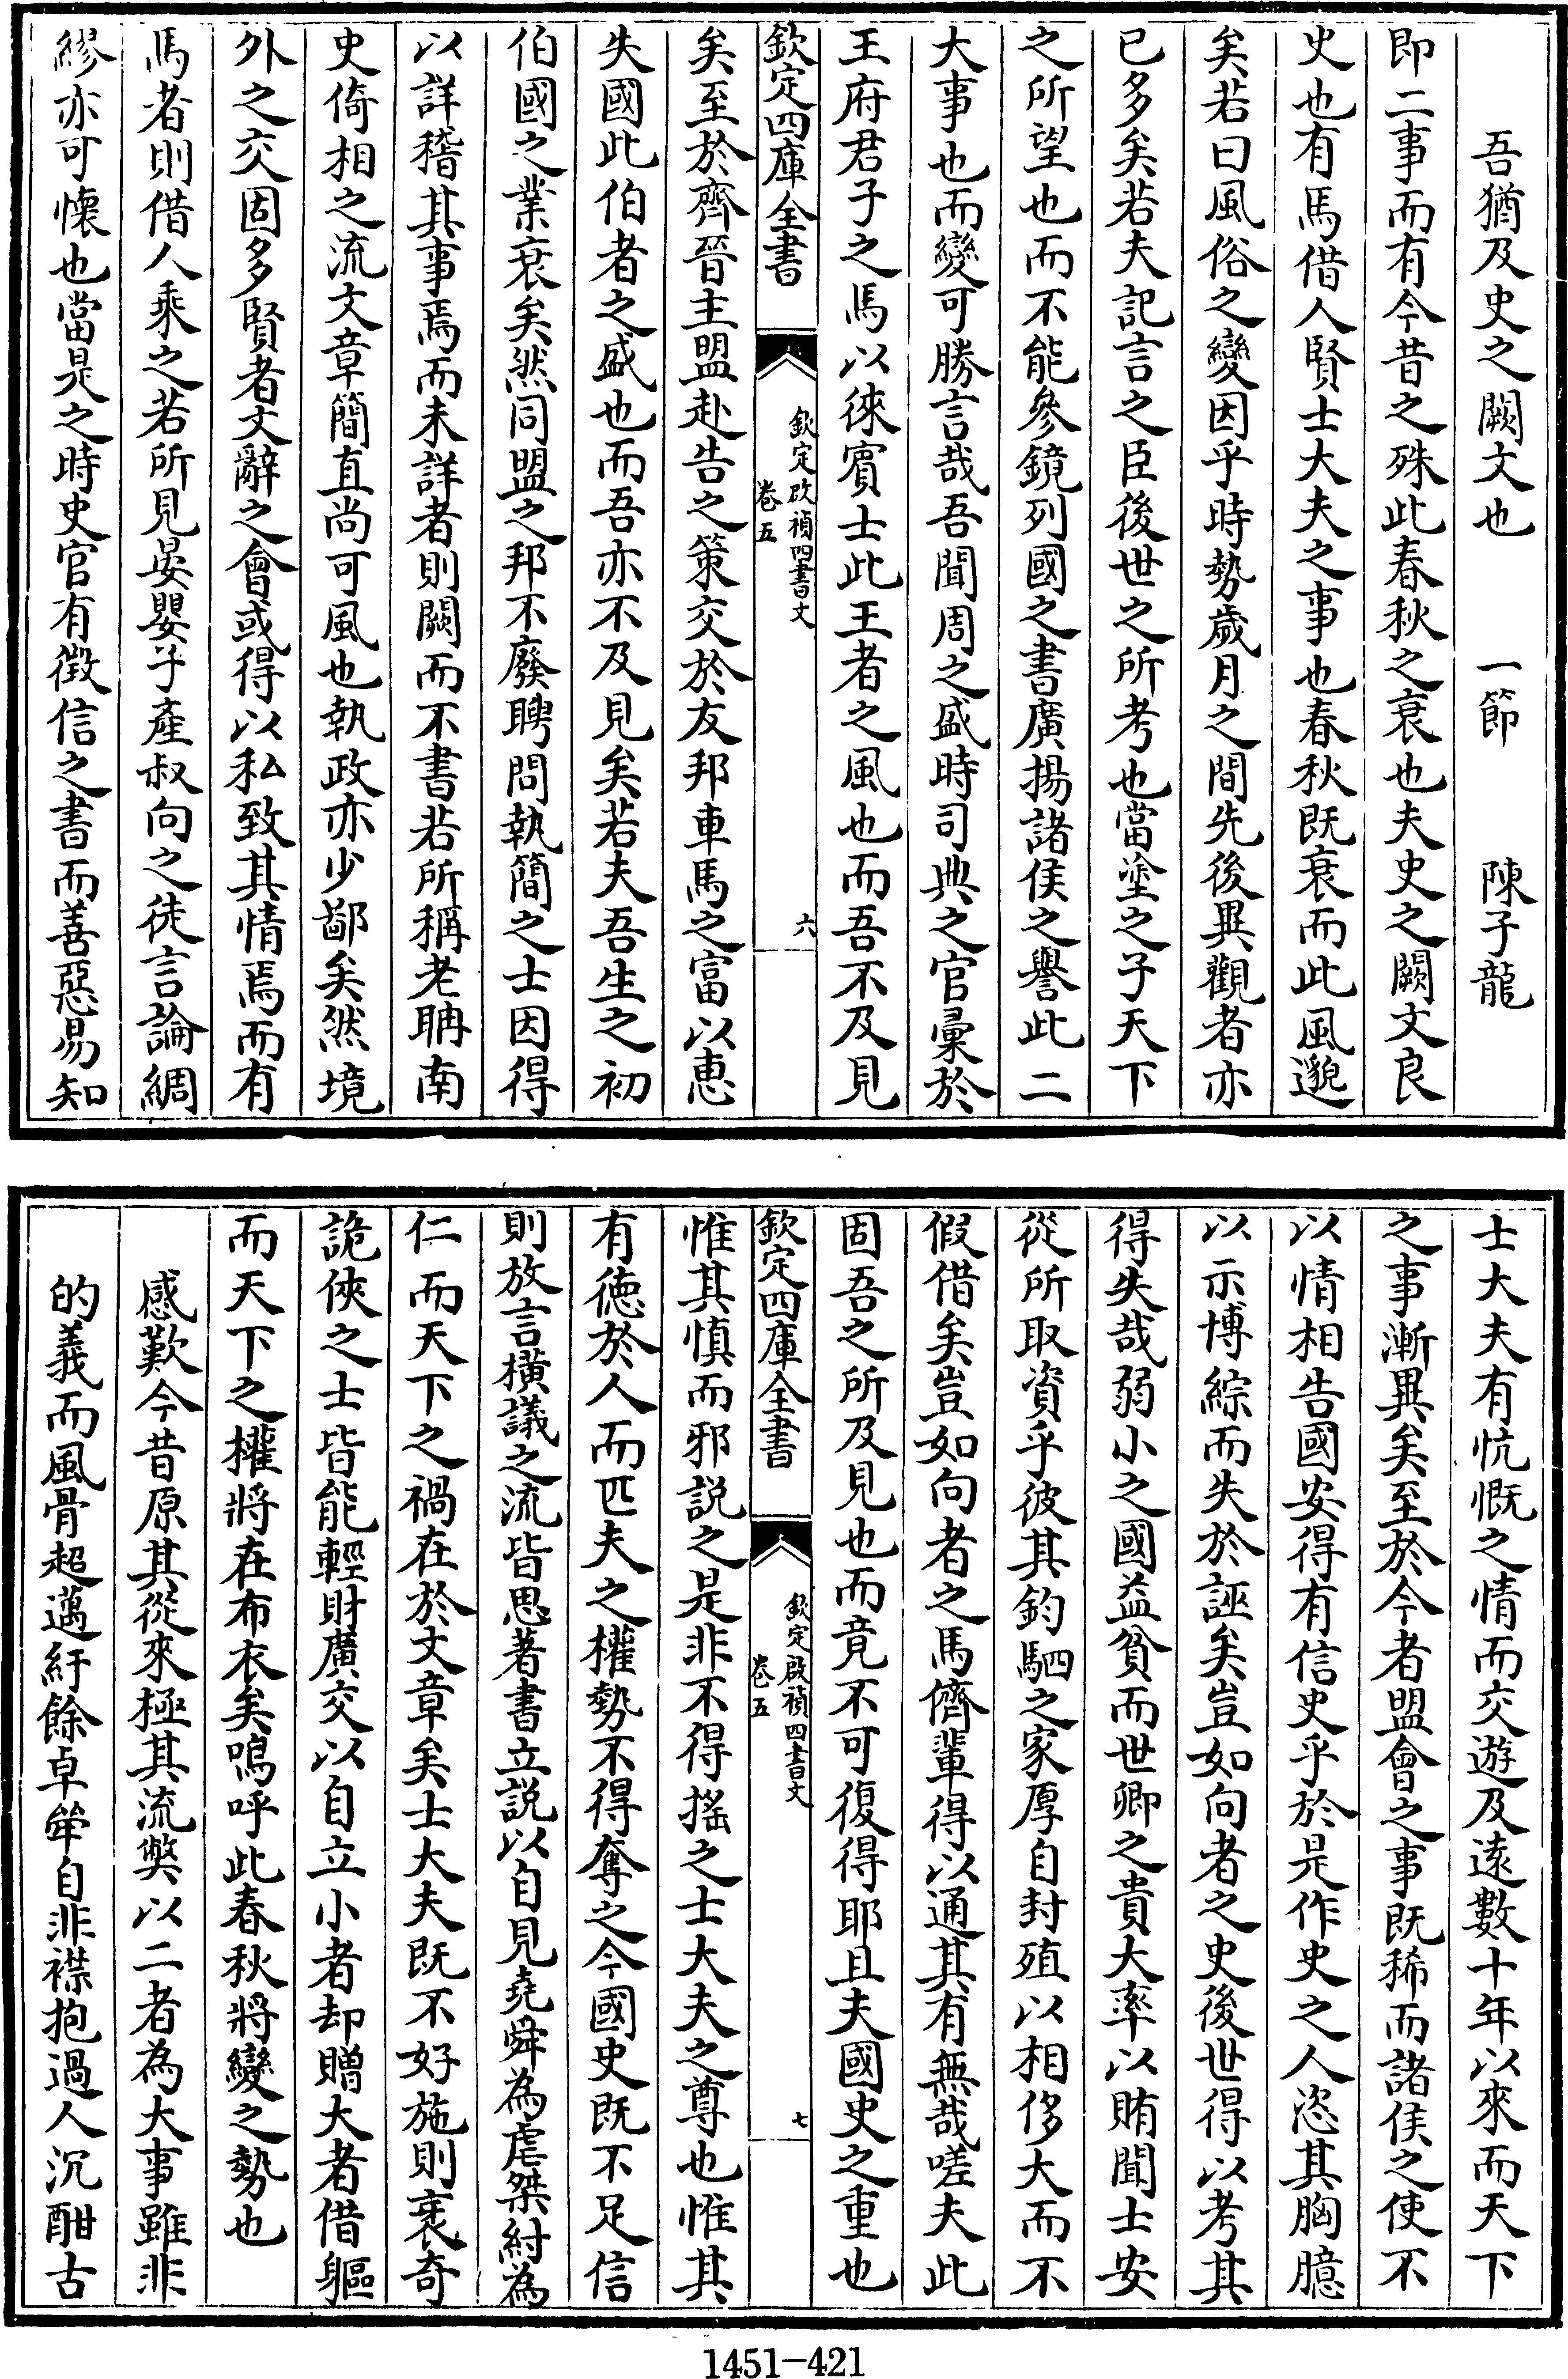 吾猶及史之闕文也　一節　陳子龍
即二事而有今昔之殊此春秋之衰也夫史之闕文良
史也有馬借人賢士大夫之事也春秋既衰而此風邈
矣若曰風俗之變因乎時勢歲月之間先後異觀者亦
已多矣若夫記言之臣後世之所考也當塗之子天下
之所望也而不能參鏡列國之書廣揚諸侯之譽此二
大事也而變可勝言哉吾聞周之盛時司典之官彙於
王府君子之馬以徠賓士此王者之風也而吾不及見
欽定四庫全書
欽定啟禎四書文
卷五
六
矣至於齊晉主盟赴告之策交於友邦車馬之富以惠
失國此伯者之盛也而吾亦不及見矣若夫吾生之初
伯國之業衰矣然同盟之邦不廢聘問執簡之士因得
以詳稽其事焉而未詳者則闕而不書若所稱老聃南
史倚相之流文章簡直尚可風也執政亦少鄙矣然境
外之交固多賢者文辭之會或得以私致其情焉而有
馬者則借人乘之若所見晏嬰子產叔向之徒言論綢
繆亦可懷也當是之時史官有徵信之書而善惡易知
士大夫有忼慨之情而交遊及遠數十年以來而天下
之事漸異矣至於今者盟會之事既稀而諸侯之使不
以情相告國安得有信史乎於是作史之人恣其胸臆
以示博綜而失於誣矣豈如向者之史後世得以考其
得失哉弱小之國益貧而世卿之貴大率以賄聞士安
從所取資乎彼其鈞駟之家厚自封殖以相侈大而不
假借矣豈如向者之馬儕輩得以通其有無哉嗟夫此
固吾之所及見也而竟不可復得耶且夫國史之重也
欽定四庫全書
欽定啟禎四書文
卷五
七
惟其慎而邪說之是非不得搖之士大夫之尊也惟其
有德於人而匹夫之權勢不得奪之今國史既不足信
則放言橫議之流皆思著書立說以自見堯舜為虐桀紂為
仁而天下之禍在於文章矣士大夫既不好施則袤奇
詭俠之士皆能輕財廣交以自立小者却贈大者借軀
而天下之權將在布衣矣嗚呼此春秋將變之勢也
感歎今昔原其從來極其流弊以二者為大事雖非
的義而風骨超邁紆餘卓犖自非襟抱過人沉酣古
1451-421